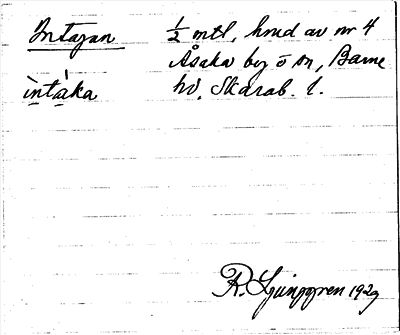 Intagan ½ mtl, hmd av nr 4
Åsaka by o sn, Barne
ìntàka hd, Skarab. l.
R. Ljunggren 1929